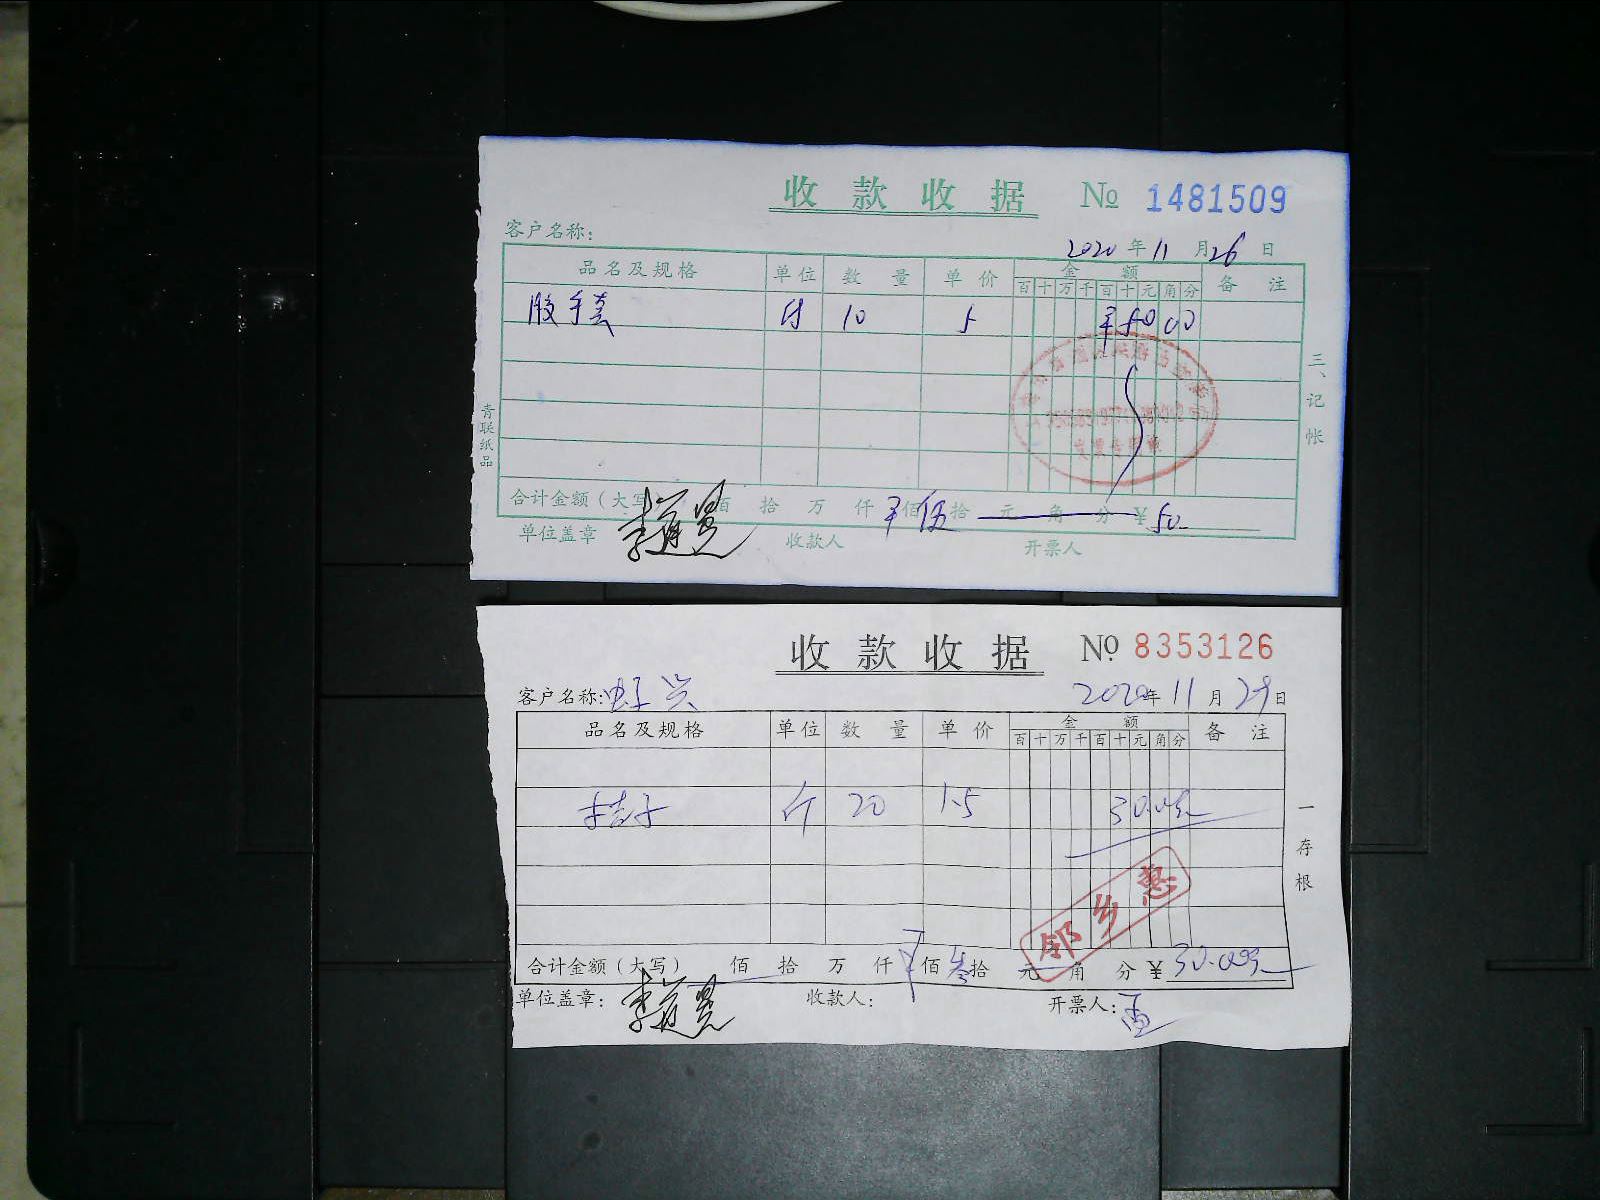 收款收据 No 1481509
客户名称：
2020年11月26日
品名及规格 单位 数量 单价 金额 备注
百十万千百十元角分
胶手套 付 10 5 ¥5000
三、记帐
青联纸品
合计金额（大写） 佰 拾 万 仟 ¥佰 伍拾 元 角 分 ¥50
单位盖章 收款人 开票人
收款收据 No 8353126
客户名称： 2020年11月29日
品名及规格 单位 数量 单价 金额 备注
百十万千百十元角分
桔子 斤 20 1.5 30.00
一存根
邻乡惠
合计金额（大写） 佰 拾 万 仟 ¥佰 叁拾 元 角 分 ¥30.00
单位盖章： 收款人： 开票人：孟